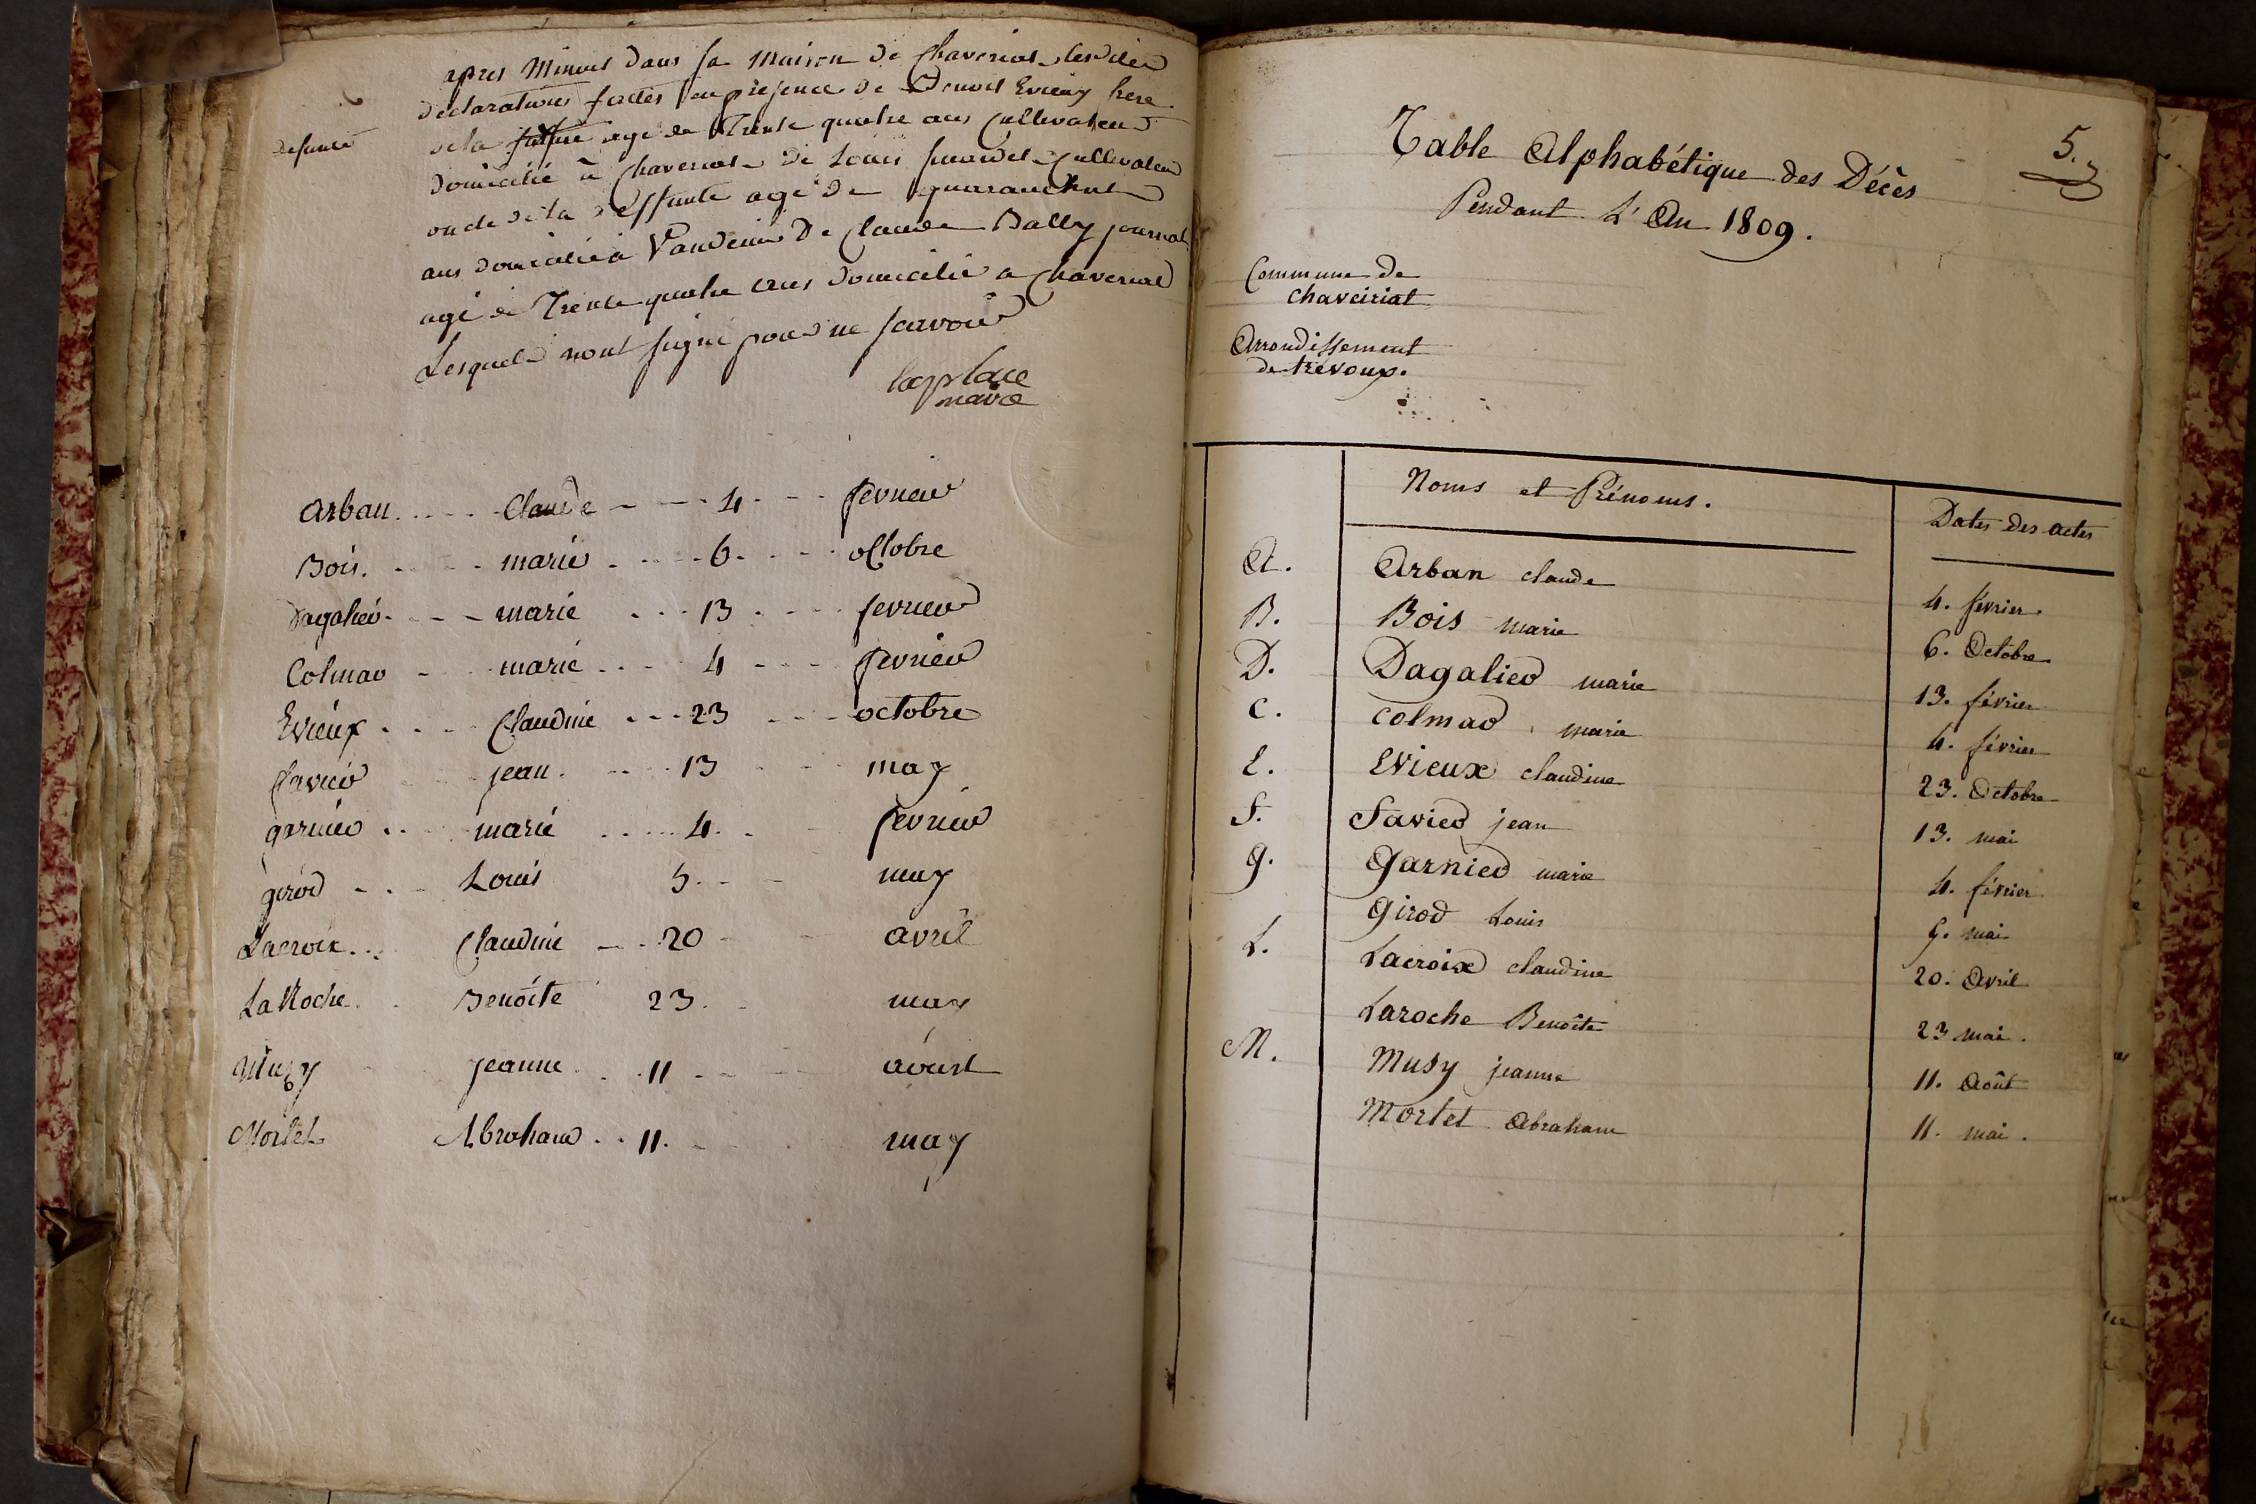 apres Minuit dans sa maison de Chaveriat lesdites
declarations faites en presence de Benoit Evieux frere
defunte
de la age de Trente quatre ans Cultivateur
domicilié à Chaveriat de Louis Cultivateur
oncle de la deffunte agé de quarante huit
ans domicilié à Vandeins De Claude Bally journal.
agé de Trente quatre ans domicilié a Chaveriat
Lesquels nont signé pour ne scavoir
laplace
maire
Arban Claude 4 fevrier
Bois marie 6 octobre
Dagalier marie 13 fevrier
Colmar marie 4 fevrier
Evieux Claudine 23 octobre
favier jean 13 may
garnier marie 4 fevrier
girod Louis 5 may
Lacroix Claudine 20 avril
LaRoche Benoite 23 may
Muzy jeanne 11 aoust
Mortel Abraham 11 may
5.
Table Alphabétique des Décès
Pendant L'An 1809.
Commune de
chaveiriat
Arrondissement
de trévoux.
Noms et Prénoms. Dates des actes
A. Arban claude 4. février
B. Bois marie 6. Octobre
D. Dagalier marie 13. février
C. Colmar marie 4. février
E. Evieux claudine 23. Octobre
F. Favier jean 13. mai
g. Garnier marie 4. février
Girod Louis 5. mai
L. Lacroix claudine 20. Avril
Laroche Benoîte 23 mai.
M. Musy jeanne 11. Août
Mortel Abraham 11. mai.